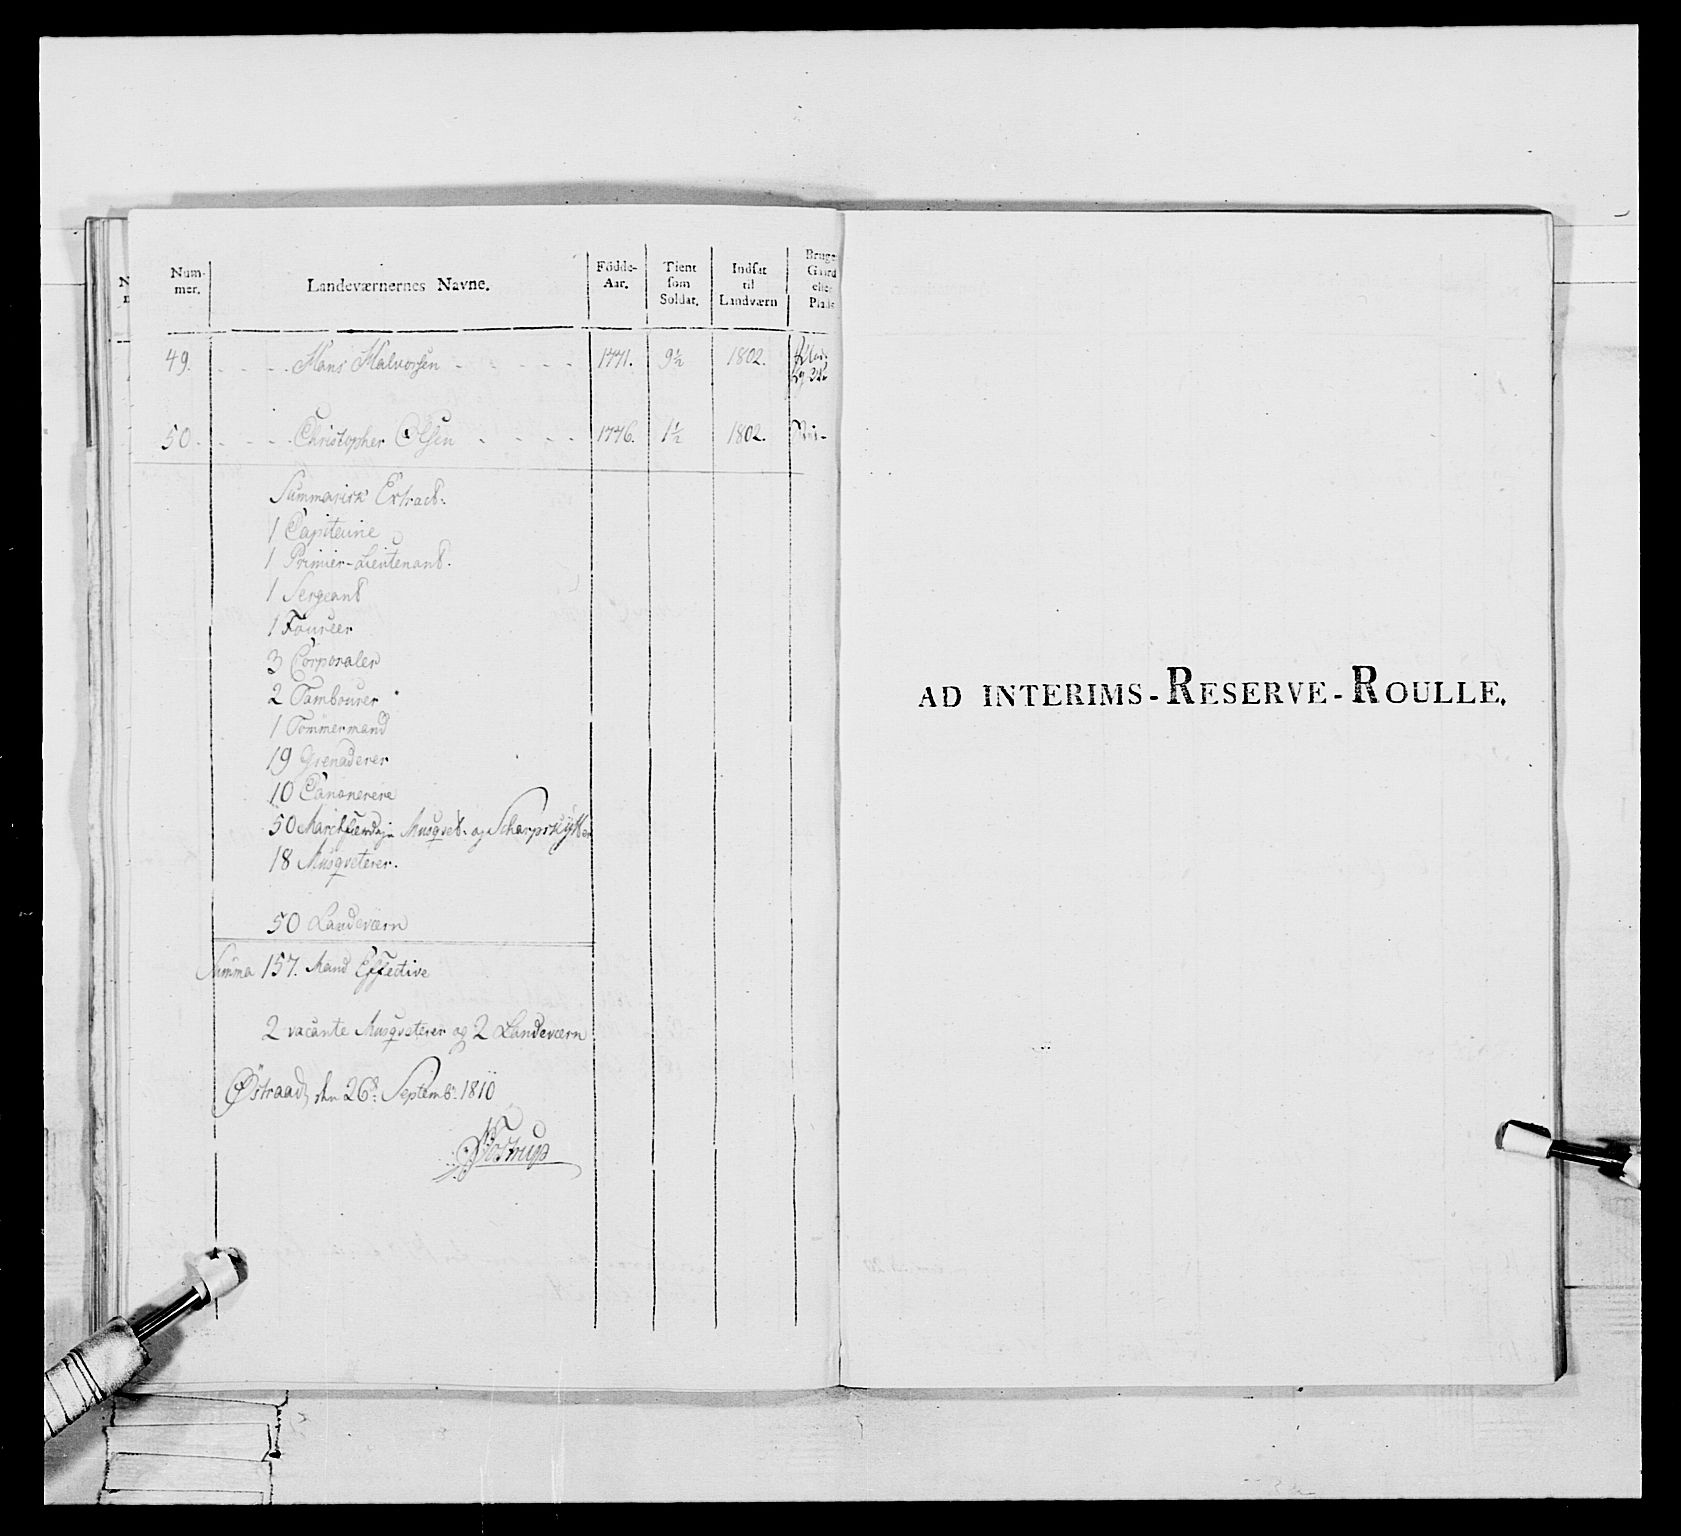 Num-
mer.
Landeværnernes Navne.
Födde-
Aar.
Tient
som
Soldat.
Indsat
til
Landværn
Bruge
Gaard
eller
Plads
49. Hans Halvorsen 1771. 9½ 1802.
50. Christopher Olsen 1776. 1½ 1802.
Summarisk Extract:
1 Capiteine
1 Primier-Lieutenant.
1 Sergeant
1 Foureer
3 Corporaler
2 Tambourer
1 Tömmermand
19 Grenaderer
10 Canonerere
50 Marchfærdige Musqvet- og Scharpskÿtter
18 Musqveterer.
50 Landeværn
Summa 157. Mand Effective
2 vacante Musqveterer og 2 Landeværn
Østraad den 26d: Septemb: 1810
AD INTERIMS-RESERVE-ROULLE.